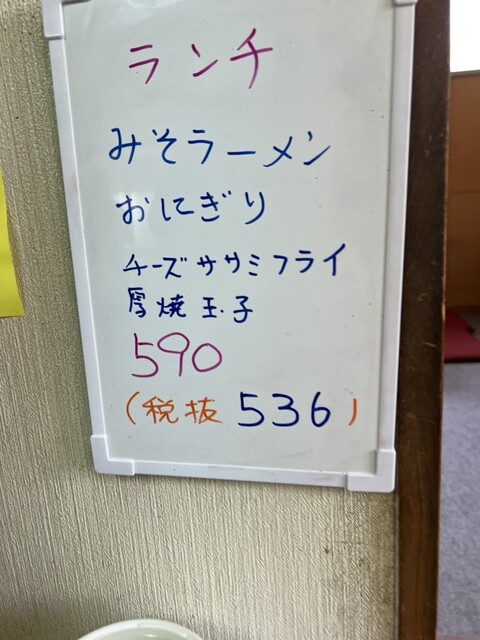 ランチ
みそラーメン
おにぎり
チーズササミフライ
厚焼玉子
590
(税抜 536)